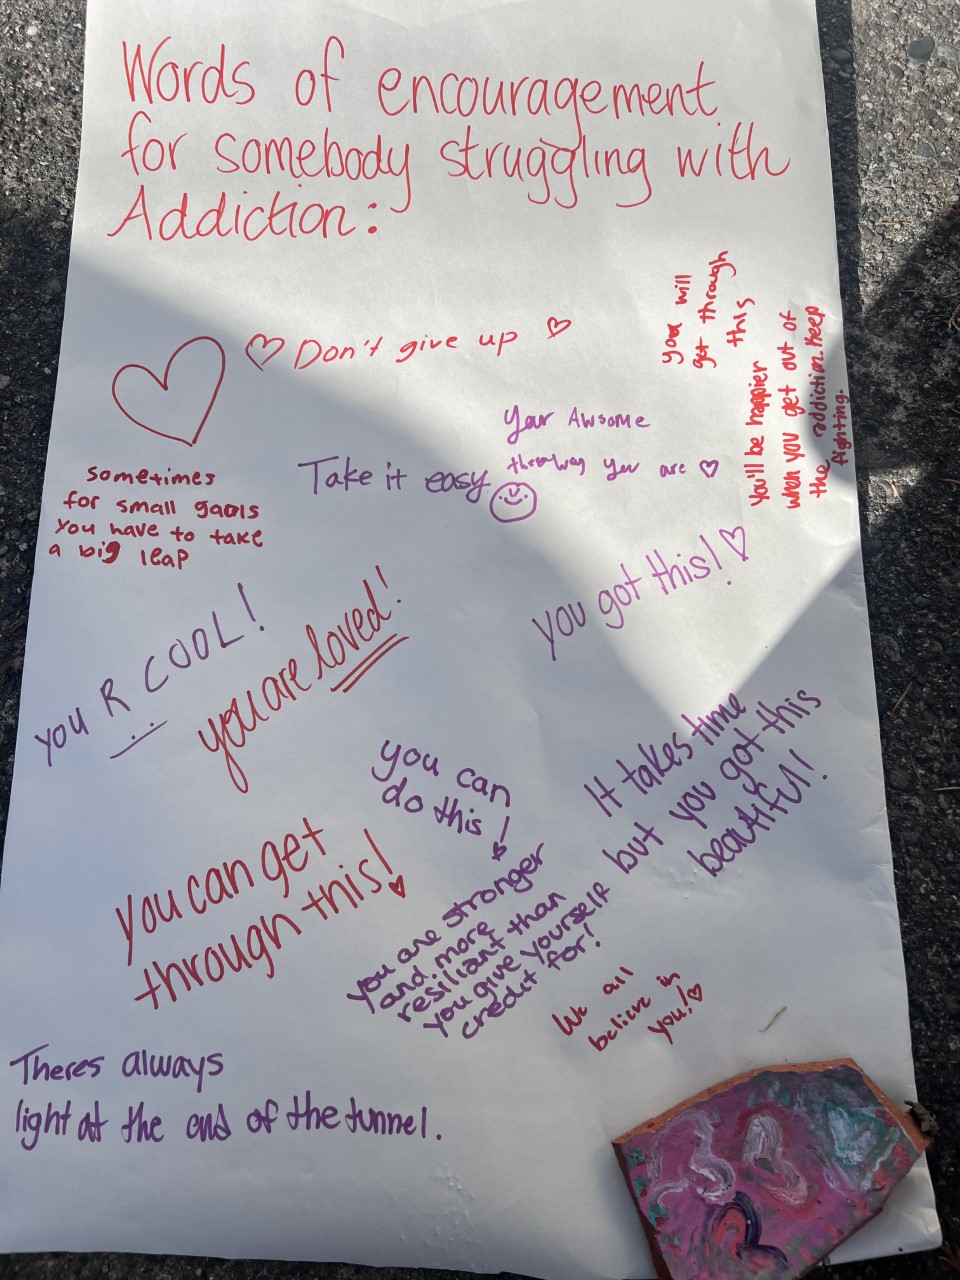 Words of encouragement
for somebody struggling with
Addiction:
you will
get through
this
♡ Don't give up ♡
You'll be happier
when you get out of
the addiction. Keep
fighting.
Your Awsome
the way you are ♡
Take it easy
sometimes
for small gaols
you have to take
a big leap
you got this! ♡
you R COOL!
you are loved!
It takes time
but you got this
beautiful!
you can
do this!
you can get
through this!
you are stronger
and more
resiliant than
you give yourself
credit for!
We all
believe in
you! ♡
Theres always
light at the end of the tunnel.